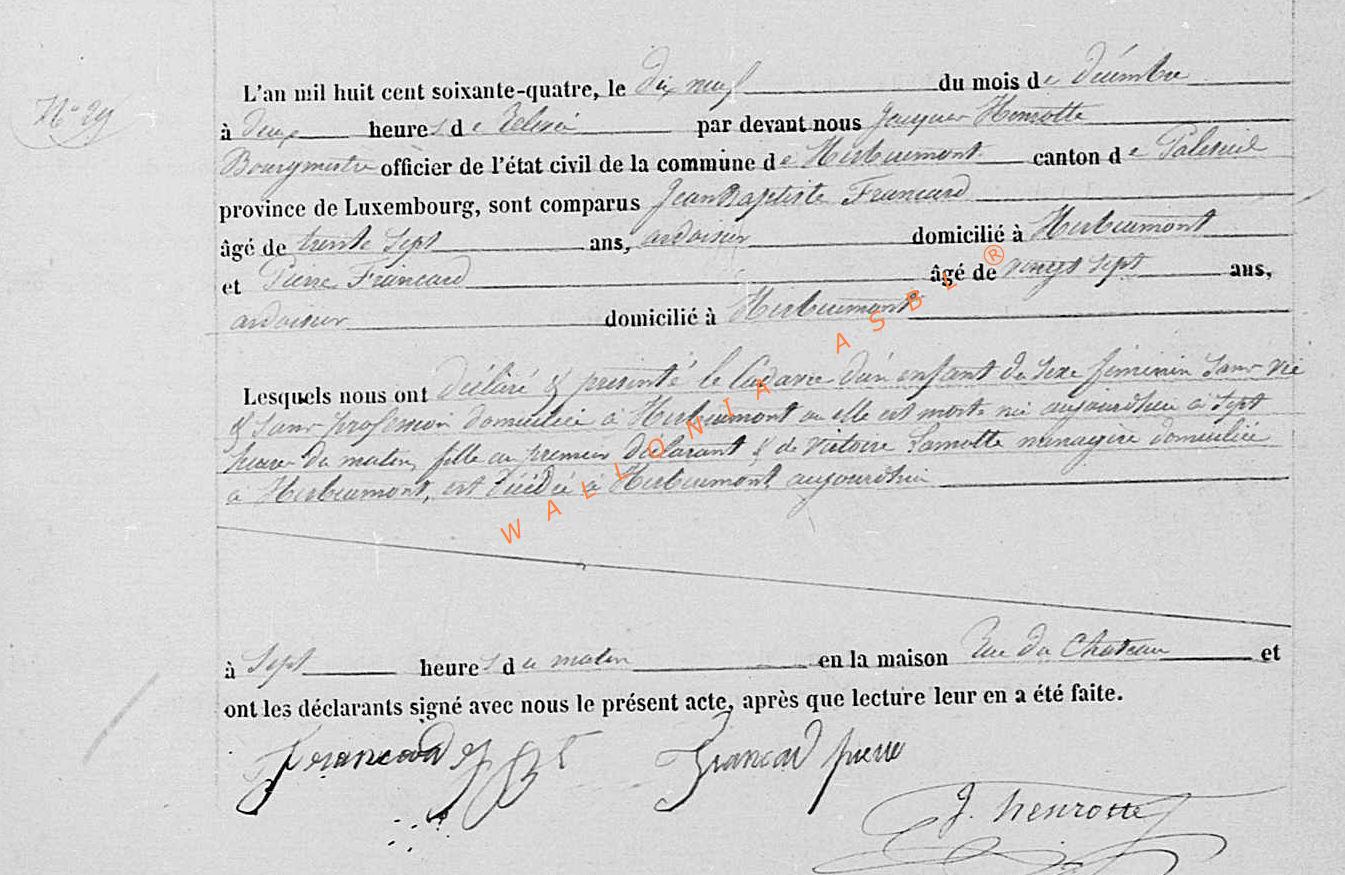 N° 29
L'an mil huit cent soixante-quatre, le dix neuf du mois de décembre
à deux heures de relevée par devant nous Jacques Henrotte
Bourgmestre officier de l'état civil de la commune de Herbeumont canton de Paliseul
province de Luxembourg, sont comparus Jean Baptiste Francard
âgé de trente sept ans, ardoisier domicilié à Herbeumont
et Pierre Francard âgé de vingt sept ans,
ardoisier domicilié à Herbeumont
Lesquels nous ont déclaré & présenté le Cadavre d'un enfant du sexe féminin sans vie
& sans profession domiciliée à Herbeumont ou elle est morte née aujourd'hui à sept
heures du matin, fille au premier déclarant & de Victoire Lamotte ménagère domiciliée
à Herbeumont, est décédée à Herbeumont aujourd'hui
à Sept heures du matin en la maison Rue du Chateau et
ont les déclarants signé avec nous le présent acte, après que lecture leur en a été faite.
Francard J Bt Francard pierre
J. henrotte
WALLONIA ASBL ®